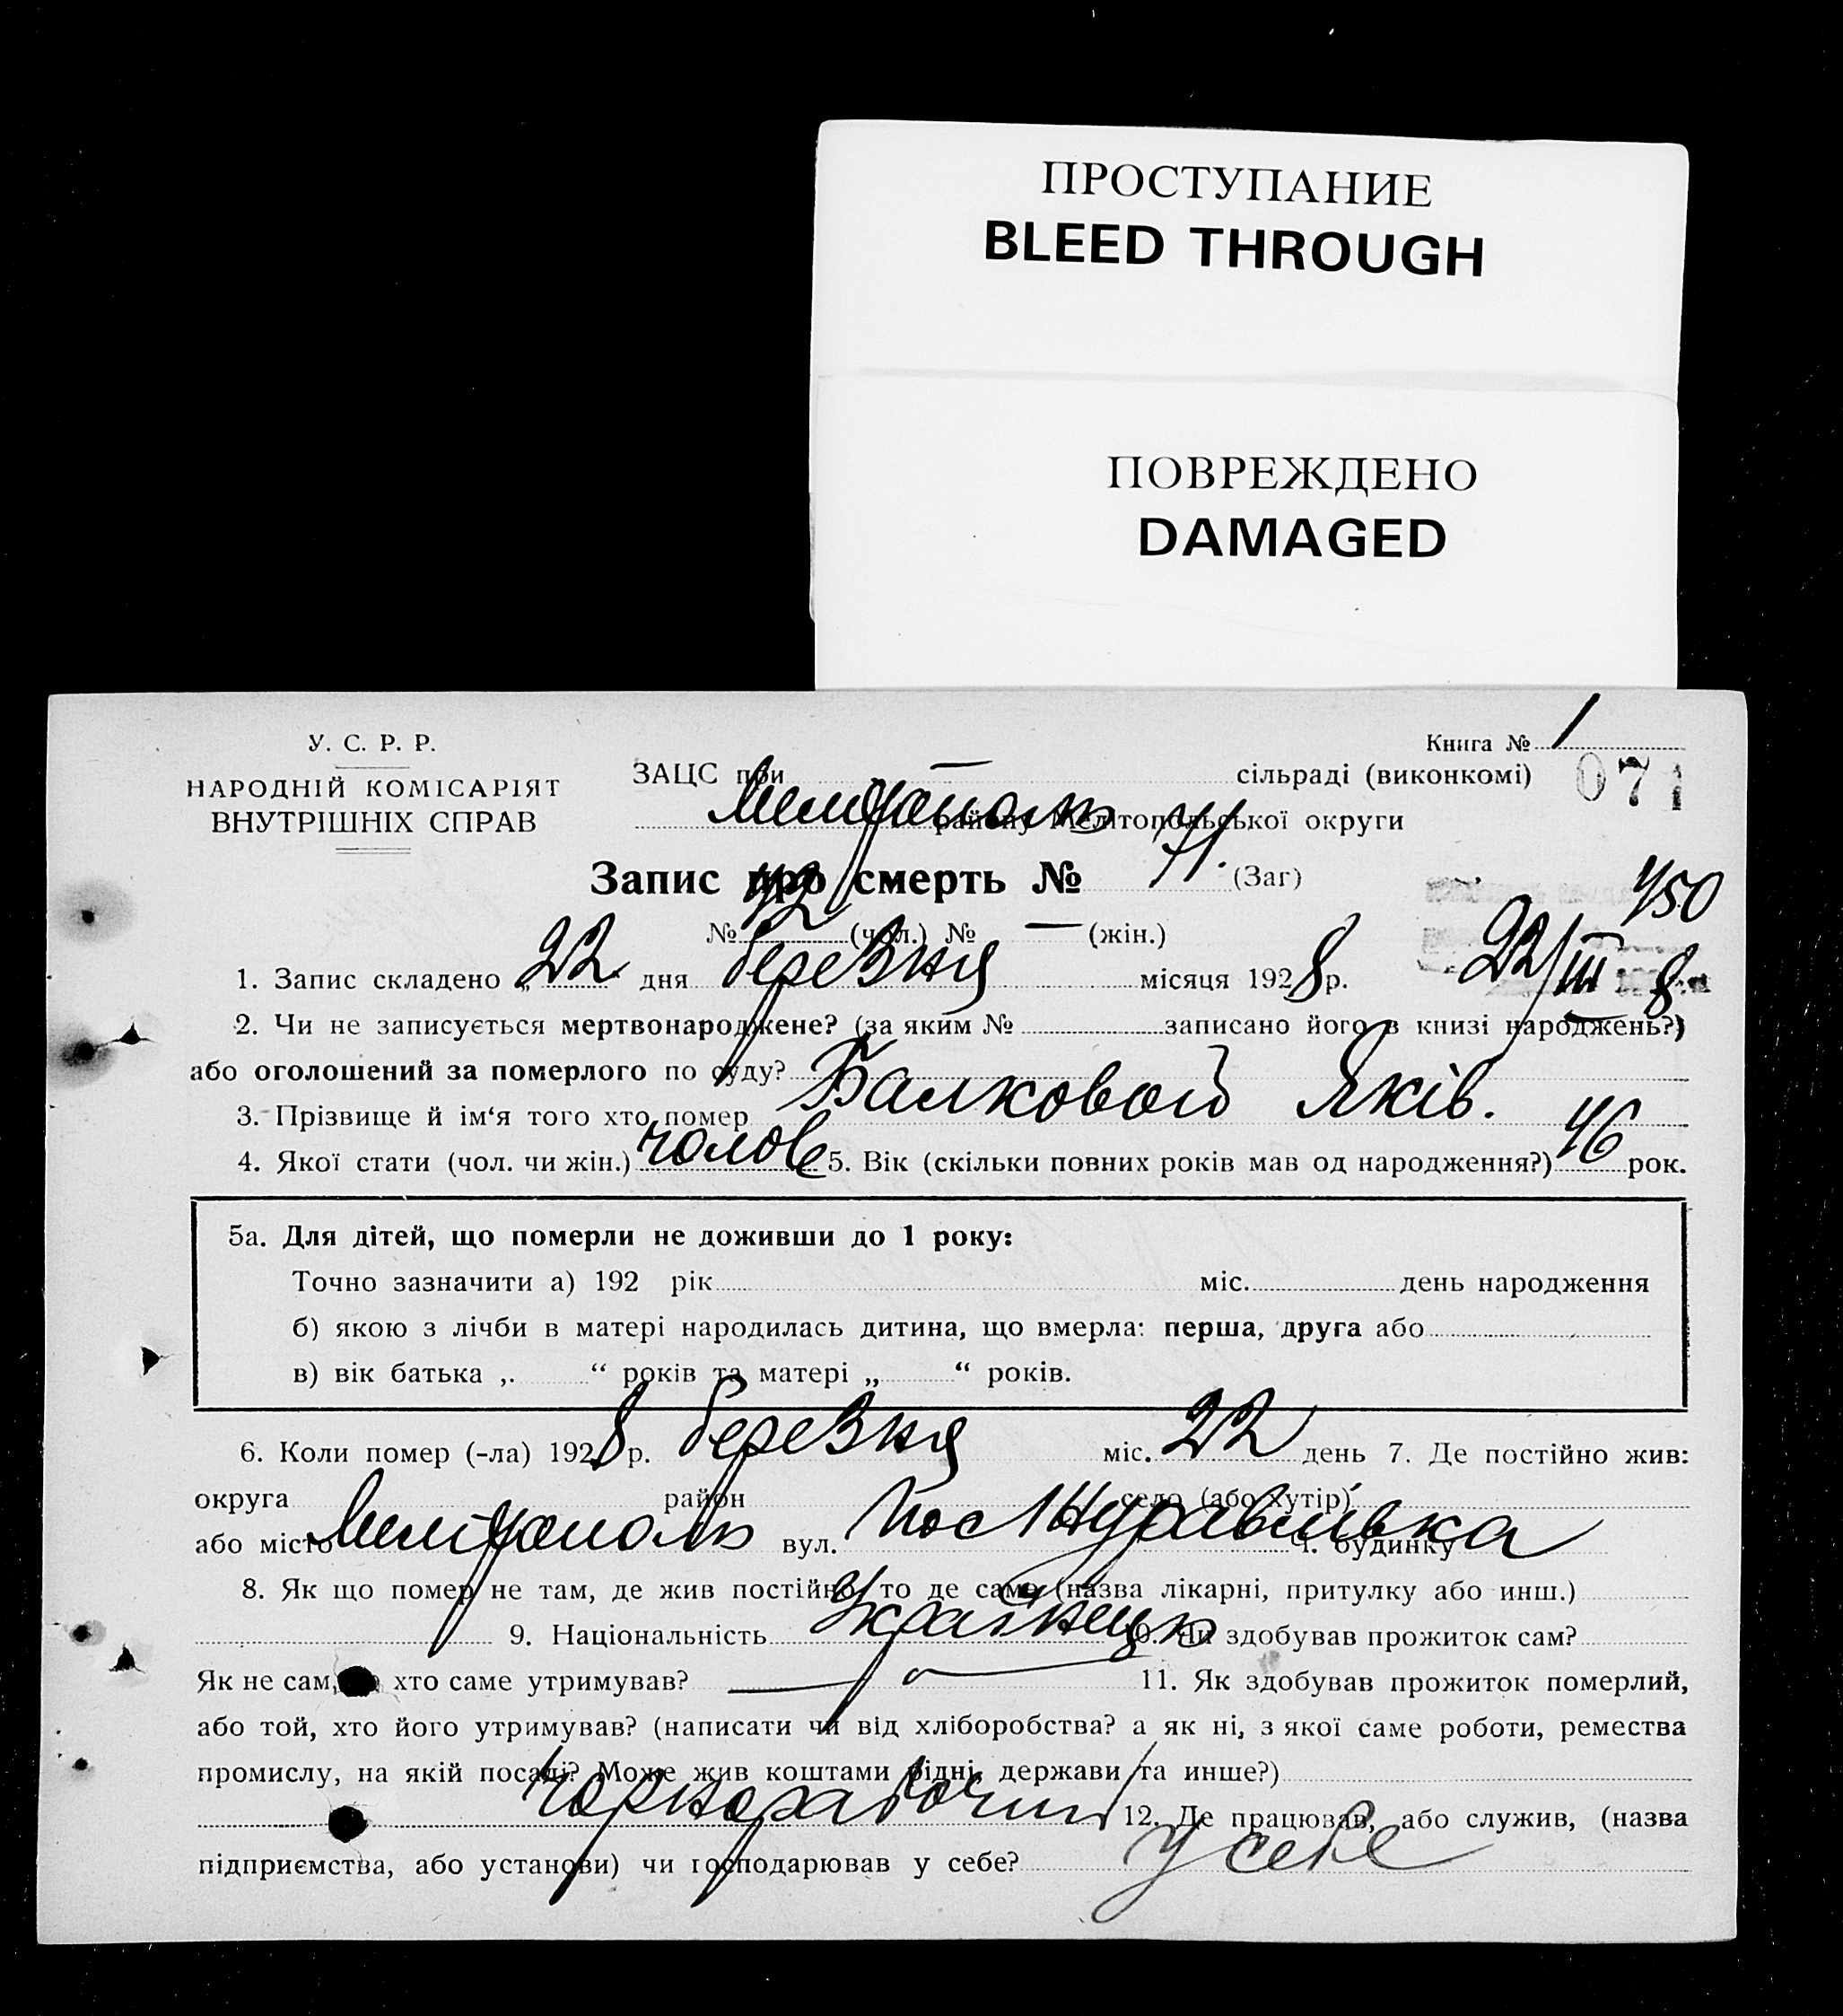 ПРОСТУПАНИЕ
BLEED THROUGH
ПОВРЕЖДЕНО
DAMAGED
У. С. Р. Р.
НАРОДНІЙ КОМІСАРІЯТ
ВНУТРІШНІХ СПРАВ
Книга № 1
071
ЗАЦС при — сільраді (виконкомі)
Мелітополь району Мелітопольської округи
Запис про смерть № 71. (Заг)
№ 42 (чол.) № — (жін.)
450
22/III 8
1. Запис складено „ 22 дня березня місяця 1928 р.
2. Чи не записується мертвонароджене? (за яким № записано його в книзі народжень?)
або оголошений за померлого по суду?
3. Прізвище й ім'я того хто помер Балковой Яків.
4. Якої стати (чол. чи жін.) чолов 5. Вік (скільки повних років мав од народження?) 46 рок.
5а. Для дітей, що померли не доживши до 1 року:
Точно зазначити а) 192 рік міс. день народження
б) якою з лічби в матері народилась дитина, що вмерла: перша, друга або
в) вік батька „ “ років та матері „ “ років.
6. Коли помер (-ла) 1928 р. березня міс. 22 день 7. Де постійно жив:
округа район село (або хутір)
або місто Мелітополь вул. Пос Журавлівка ч. будинку
8. Як що помер не там, де жив постійно, то де саме (назва лікарні, притулку або инш.)
9. Національність Українець 10. Чи здобував прожиток сам?
Як не сам, хто саме утримував? — 11. Як здобував прожиток померлий,
або той, хто його утримував? (написати чи від хліборобства? а як ні, з якої саме роботи, ремества
промислу, на якій посаді? Може жив коштами рідні, держави та инше?)
Чорнорабочий 12. Де працював, або служив, (назва
підприємства, або установи) чи господарював у себе? У себе